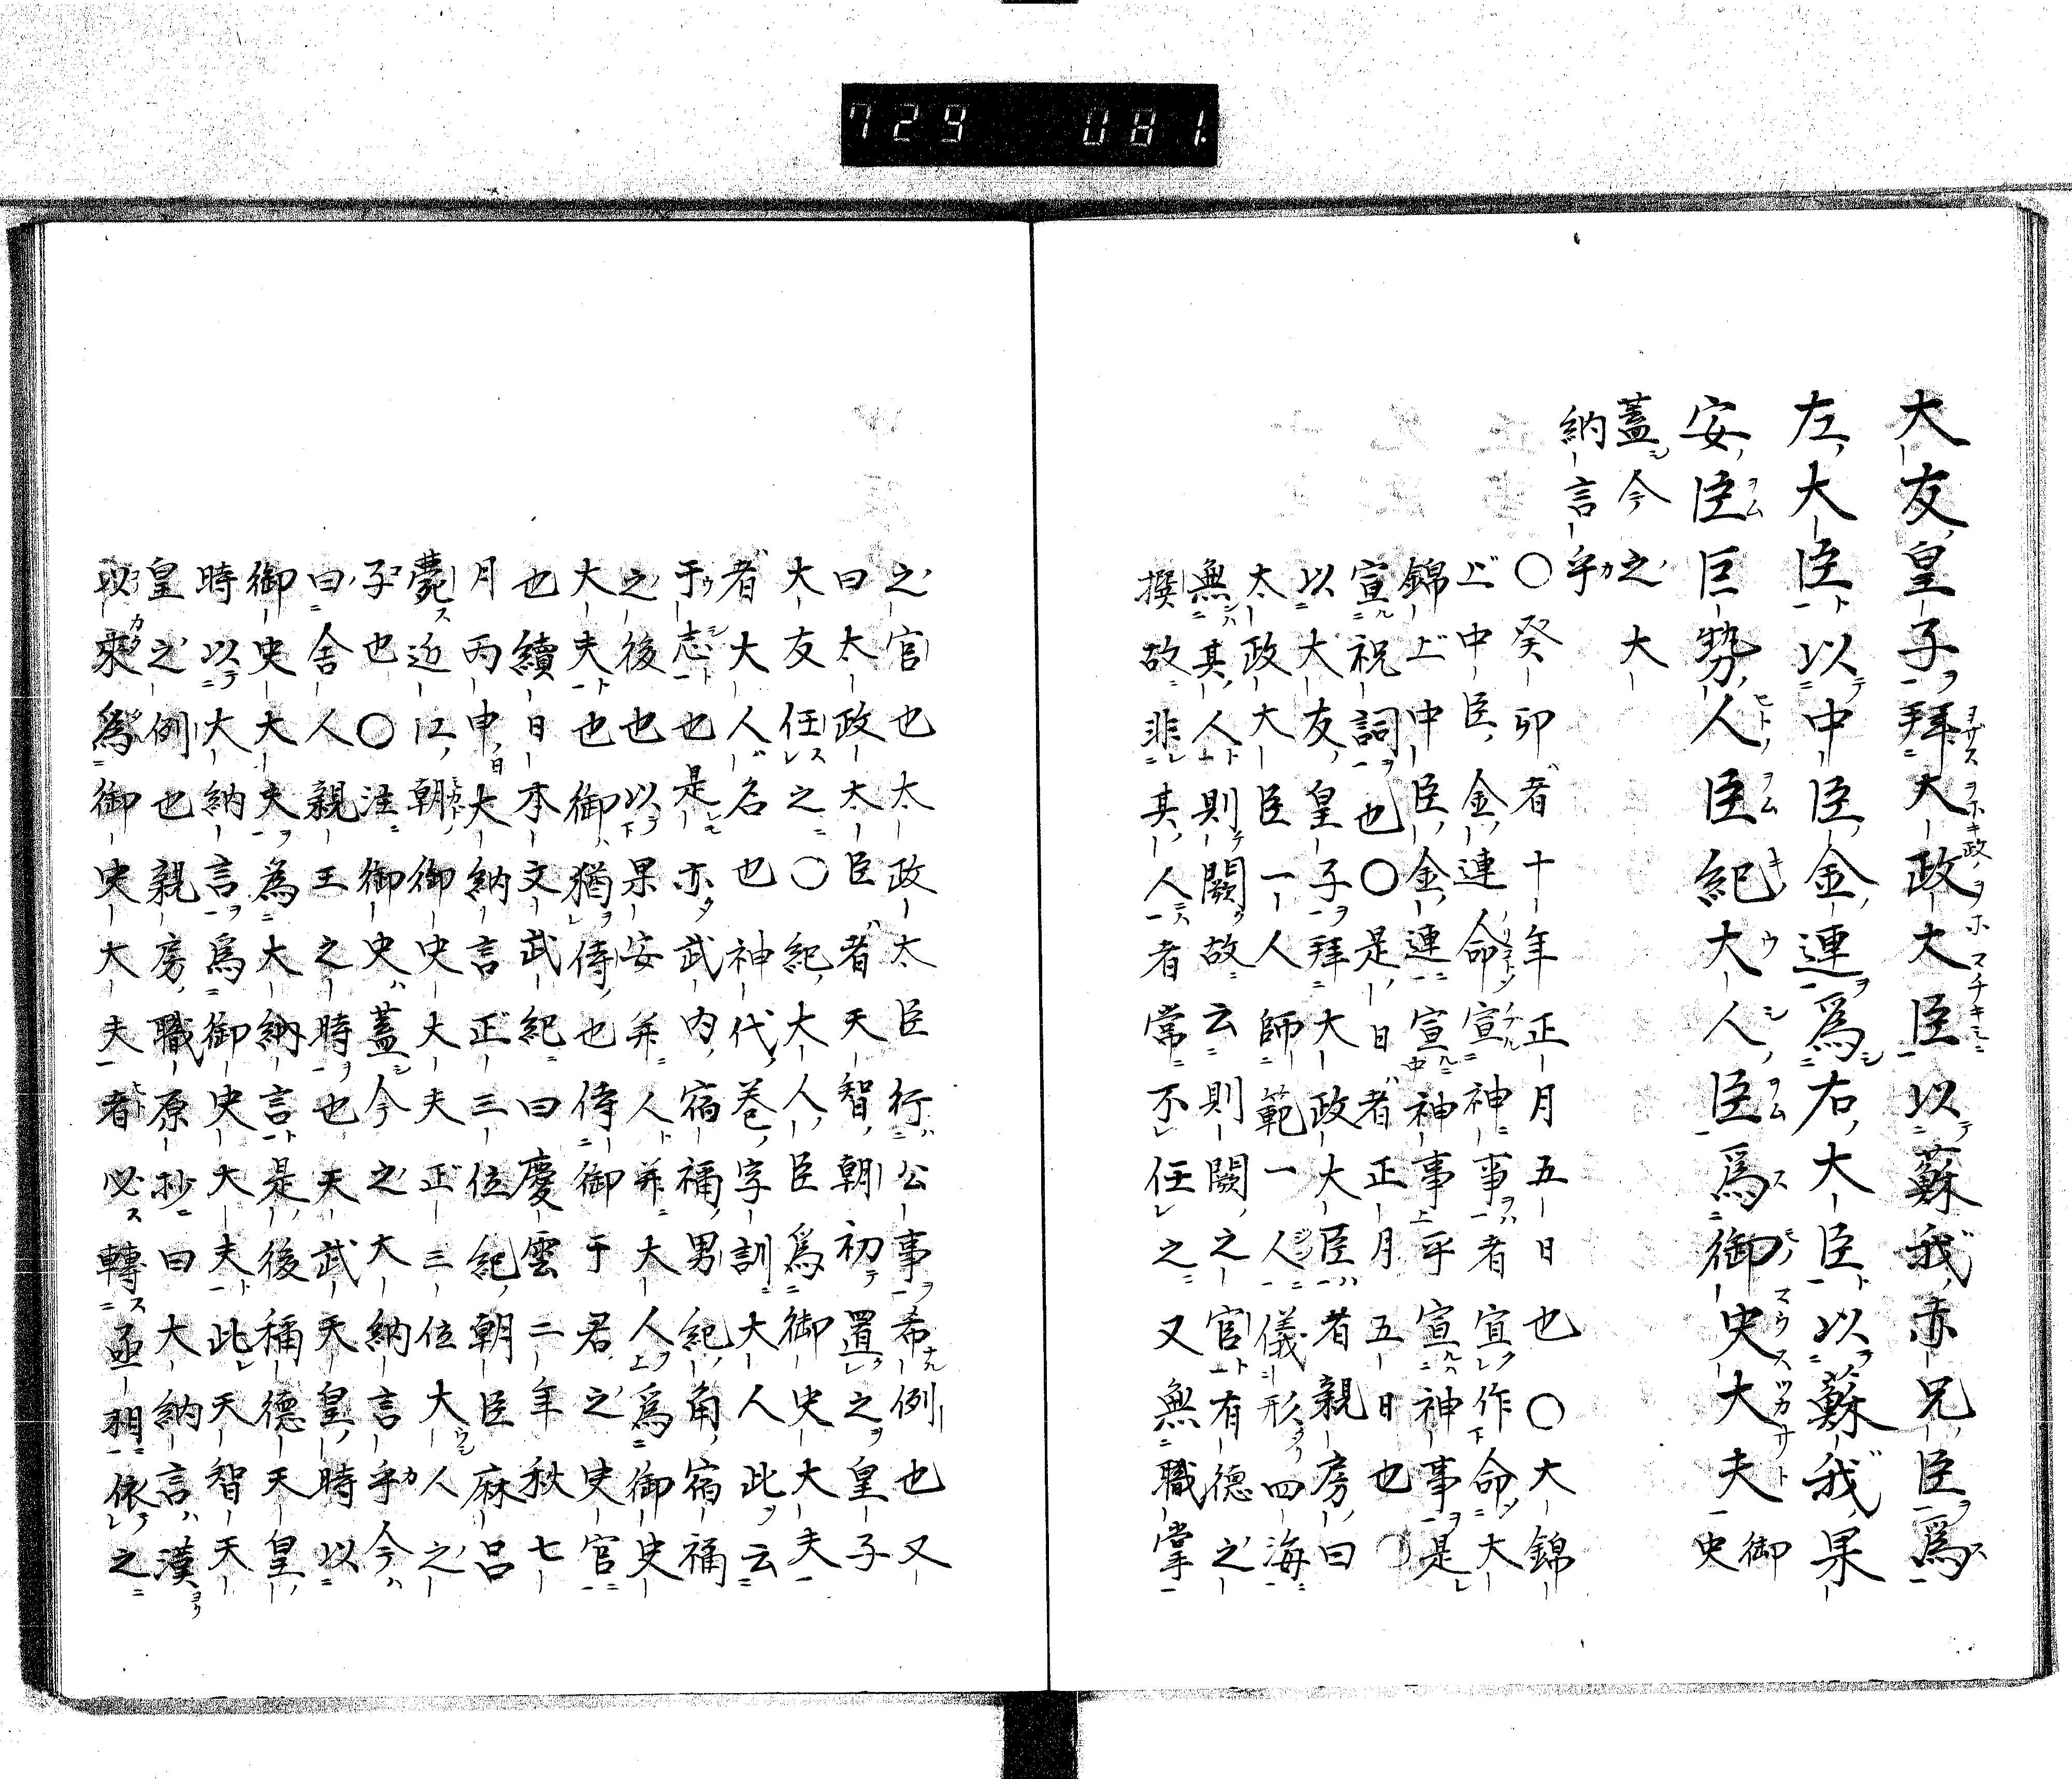 729 081
大友皇子拜大政大臣以蘇我赤兄臣為
左大臣以中臣金連爲右大臣以蘇我果
安臣巨勢人臣紀大人臣爲御史大夫御史
蓋今之大
納言乎
○癸卯者十年正月五日也○大錦
上中臣金連命宣神事者宣作命大
錦上中臣金連宣神事乎宣神事是
宣祝詞也○是日者正月五日也○
以大友皇子拜大政大臣者親房曰
太政大臣一人師範一人儀形四海
無其人則闕故云則闕之官有德之
撰故非其人者常不任之又無職掌
之官也太政太臣行公事希例也又
曰太政太臣者天智朝初置之皇子
大友任之○紀大人臣爲御史大夫
者大人名也神代巻字訓大人此云
于志也是亦武内宿禰男紀角宿禰
之後也以果安并人并大人爲御史
大夫也御猶侍也侍御于君之史官
也續日本文武紀曰慶雲二年秋七
月丙申大納言正三位紀朝臣麻呂
薨近江朝御史大夫正三位大人之
子也○注御史蓋今之大納言乎今
曰舎人親王之時也天武天皇時以
御史大夫為大納言是後稱德天皇
時以大納言爲御史大夫此天智天
皇之例也親房職原抄曰大納言漢
以來爲御史大夫者必轉丞相依之